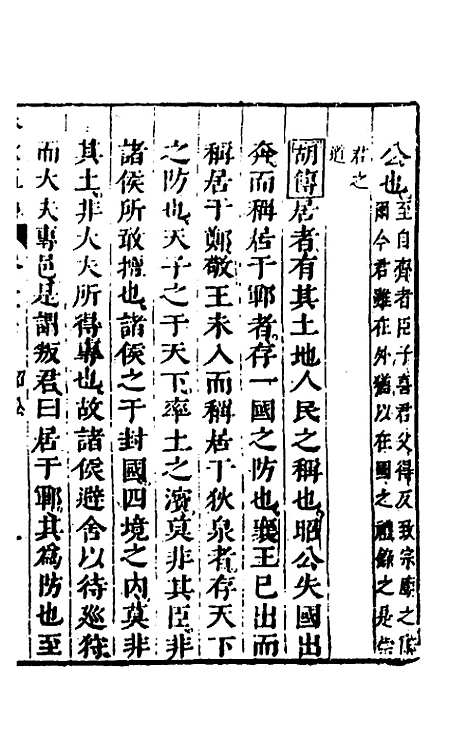 公也至自齊者臣子喜君父得反致宗廟之
爾今君雖在外猶以在國之禮錄之是崇
君之
道
胡傳居者有其土地人民之稱也昭公失國出
奔而稱居于鄆者存一國之防也襄王已出而
稱居于鄭敬王未入而稱居于狄泉者存天下
之防也天子之于天下率土之濱莫非其臣非
諸侯所敢擅也諸侯之于封國四境之內莫非
其土非大夫所得專也故諸侯避舍以待巡狩
而大夫專邑是謂叛君曰居于鄆其為防也至